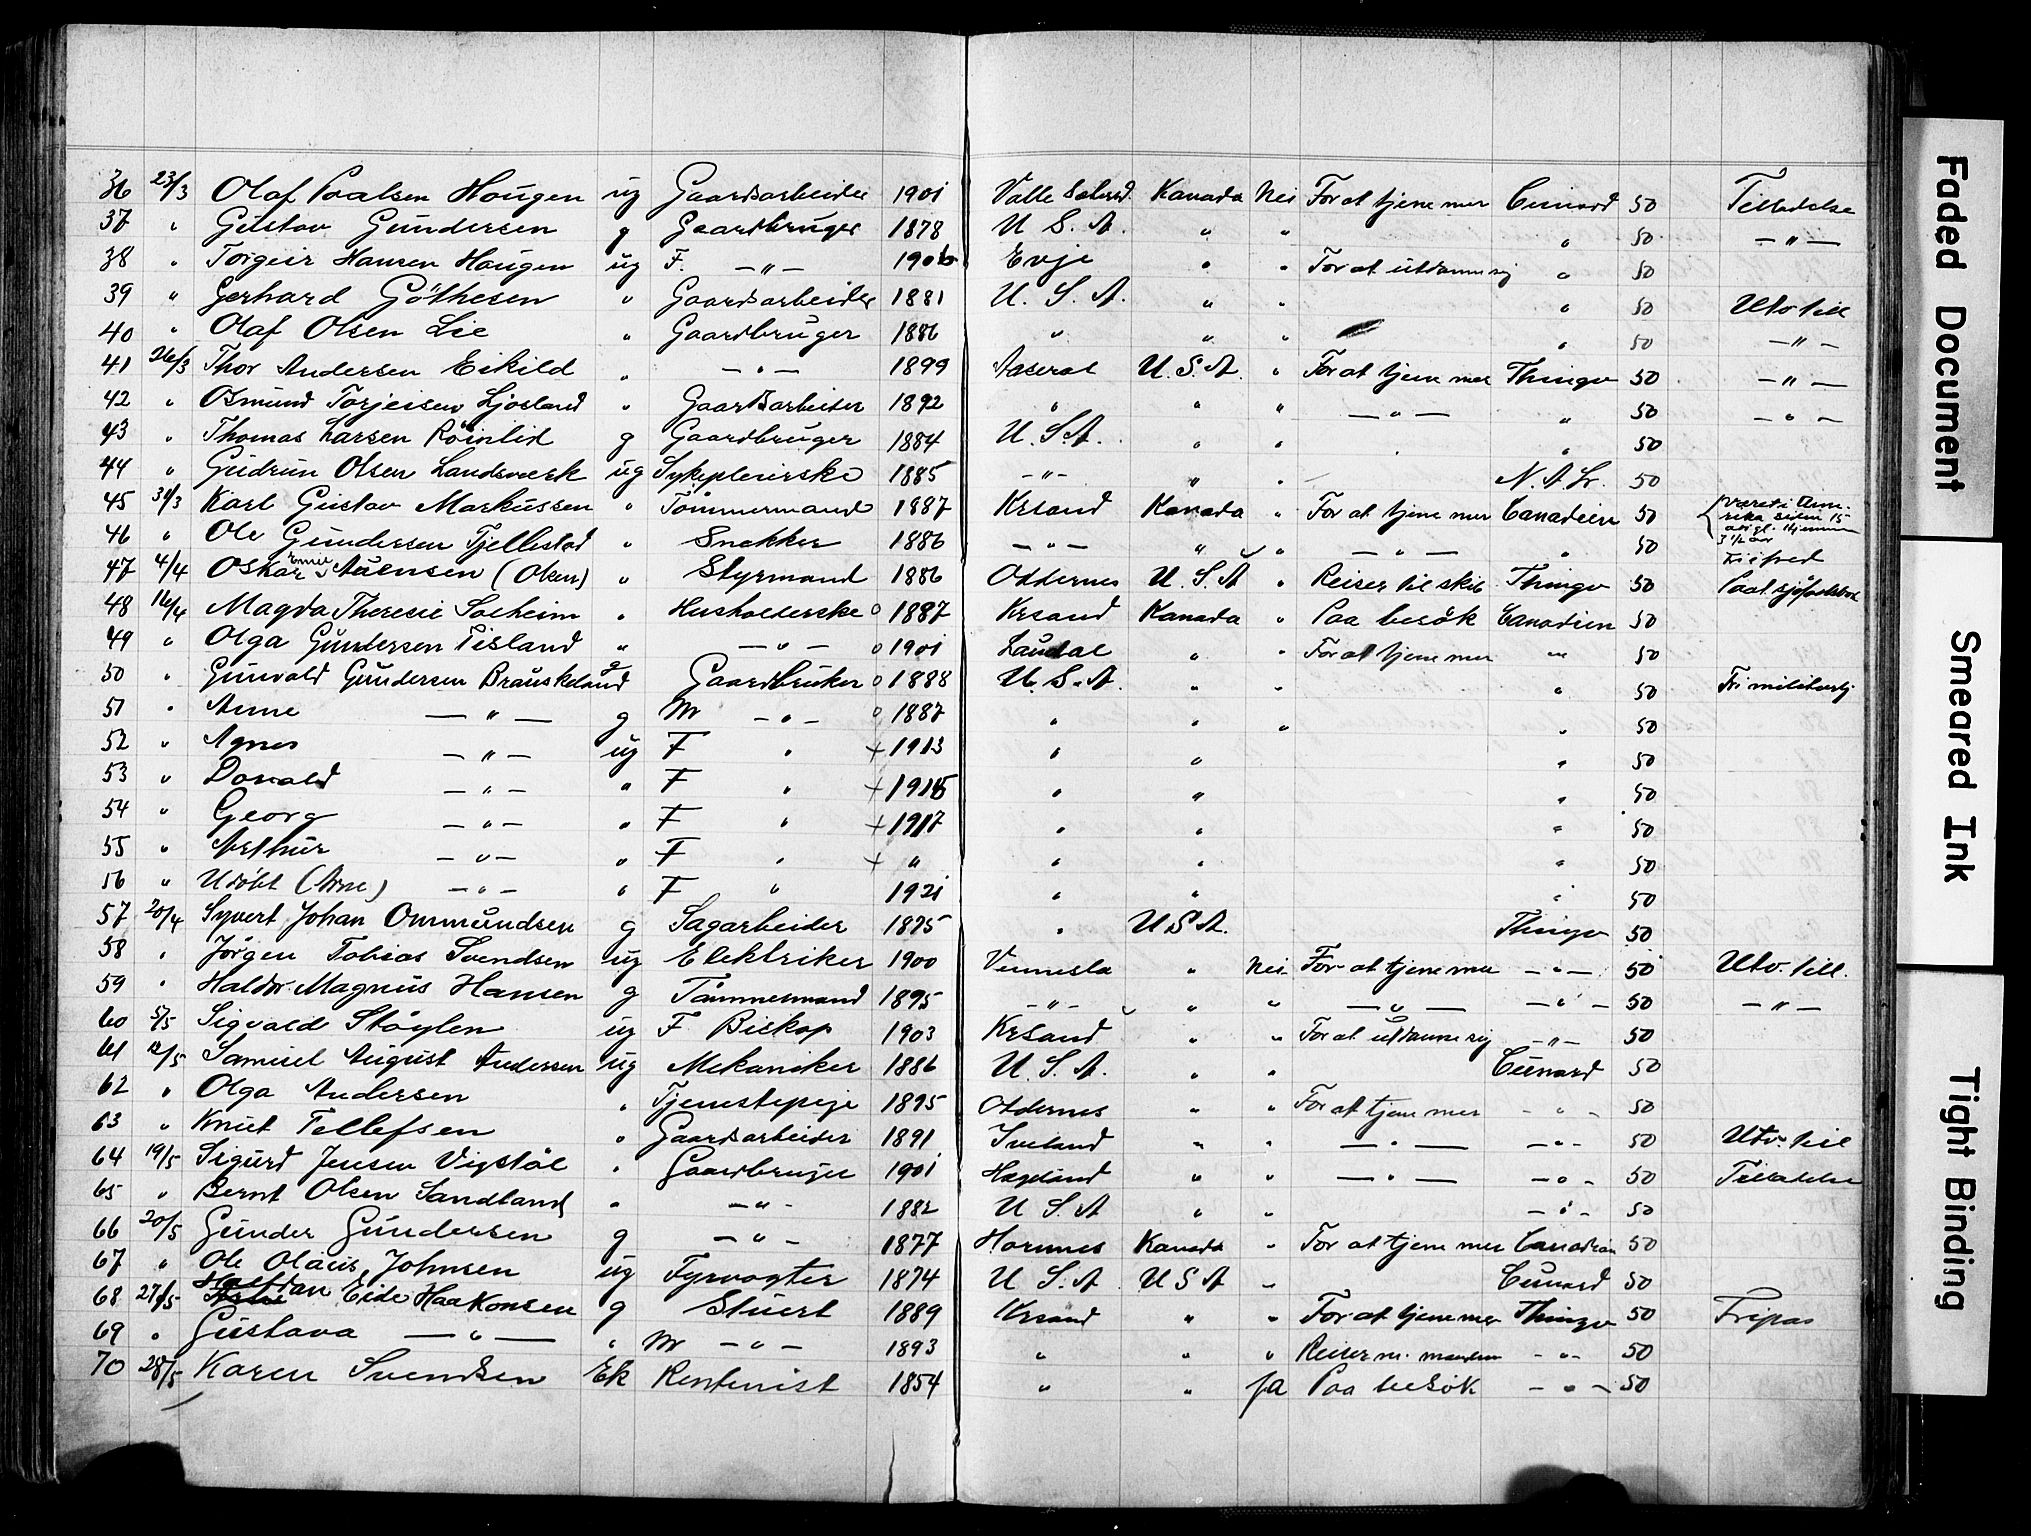 36 23/3 Olaf Paalsen Haugen ug Gaardsarbeider 1901 Valle Kanada Nei For at tjene mer Cunard 50 Tilladelse
37 " Gustav Gundersen g Gaardbruger 1878 U. S. A. " " " 50 — " —
38 " Torgeir Hansen Haugen ug F. — " — 1906 Evje " " For at utdanne sig " 50
39 " Gerhard Göthesen " Gaardsarbeider 1881 U. S. A. " " 50 Utv till
40 " Olaf Olsen Lie " Gaardbruger 1886 " " " " 50 — " —
41 26/3 Thor Andersen Eikild " — " — 1899 Aaseral U. S. A. " For at tjene mer Thingv 50 — " —
42 " Osmund Torjeisen Ljosland " Gaardsarbeider 1892 " " " — " — " 50 — " —
43 " Thomas Larsen Röinlid g Gaardbruger 1884 U. S. A. " " " 50
44 " Gudrun Olsen Landsverk ug Sykepleierske 1885 — " — " " N. A. Lr. 50
45 31/3 Karl Gustav Markussen " Tömmermand 1887 Krsand Kanada " For at tjene mer Canadien 50 været i Ame-
rika siden 15
3 1/2 aar
46 " Ole Gundersen Fjellestad " Snekker 1886 — " — " " — " — " 50
47 4/4 Oskar Emil Auensen (Olsen) " Styrmand 1886 Oddernes U. S. A " Reiser til skib Thingv 50
48 16/4 Magda Theresie Solheim " Husholderske o 1887 Krsand Kanada " Paa besök Canadien 50
49 " Olga Gundersen Fisland " — " — o 1901 Laudal " " For at tjene mer — " — 50
50 " Gunvald Gundersen Brauskeland g Gaardbruker o 1888 U. S. A. " " " 50 Fri militærtj
51 " Anne — " — g M — " — o 1887 " " " " 50
52 " Agnes — " — ug F " + 1913 " " " 50
53 " Donald — " — " F " + 1915 " " " 50
54 " Georg — " — " F " + 1917 " " " 50
55 " Arthur — " — " F " + " " " " 50
56 " Udöbt (Arne) — " — " F " 1921 " " " 50
57 20/4 Syvert Johan Ommundsen g Sagarbeider 1895 " U S A. Thingv 50
58 " Jörgen Tobias Svendsen ug Elektriker 1900 Vennesla " Nei For at tjene mer — " — 50 Utv. till.
59 " Haldor Magnus Hansen g Tömmermand 1895 — " — " " — " — — " — 50 — " —
60 5/5 Sigvald Stöylen ug F Biskop 1903 Krsand " " For at utdanne sig — " — 50
61 12/5 Samuel August Andersen ug Mekaniker 1886 U. S. A. " " Cunard 50
62 " Olga Andersen " Tjenestepige 1895 Oddernes " " For at tjene mer — " — 50
63 " Knut Tellefsen " Gaardsarbeider 1891 Iveland " " — " — — " — 50 Utv. till
64 19/5 Sigurd Jensen Vigstöl " Gaardbruger 1901 Hægeland " " — " — — " — 50 Tilladelse
65 " Bernt Olsen Sandland " — " — 1882 U. S. A " " — " — 50
66 20/5 Gunder Gundersen g — " — 1877 Hornnes Kanada " For at tjene mer Canadian 50
67 " Ole Olaus Johnsen ug Fyrvogter 1874 U. S. A U S A " Cunard 50
68 27/5 Halfdan Eide Haakonsen g Stuert 1889 Krsand " " For at tjene mer Thingv 50 Fripas
69 " Gustava — " — " M — " — 1893 " " " Reiser m. manden — " — 50
70 28/5 Karen Svendsen Ek Rentenist 1854 " " ja Paa besök — " — 50
Faded Document
Smeared Ink
Tight Binding